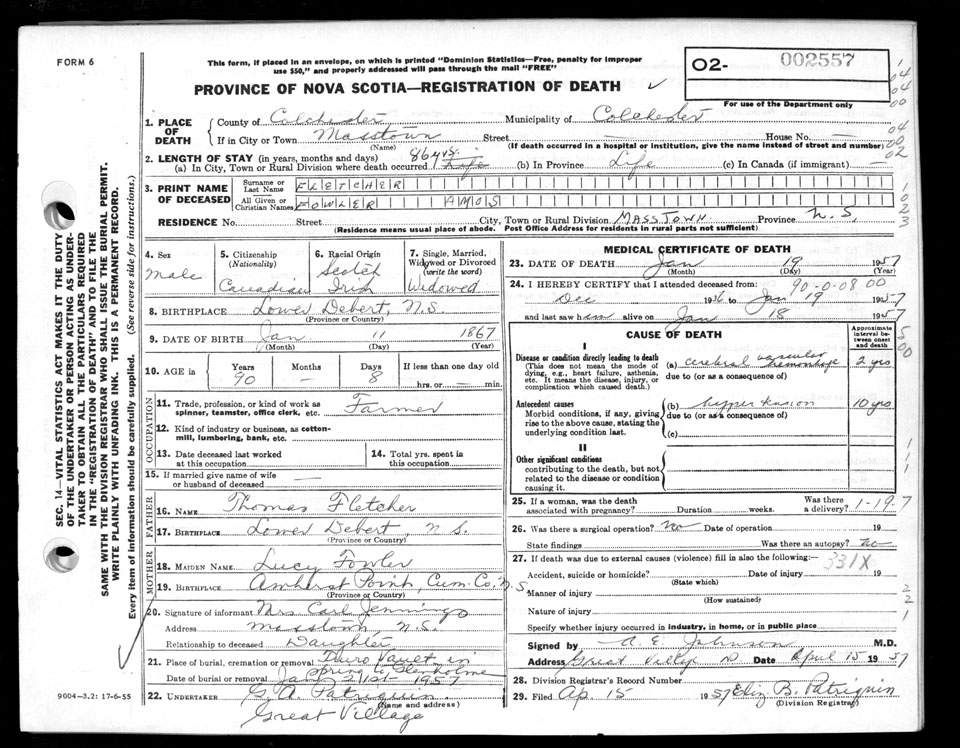 FORM 6
This form, if placed in an envelope, on which is printed "Dominion Statistics—Free, penalty for improper
use $50," and properly addressed will pass through the mail "FREE"
PROVINCE OF NOVA SCOTIA—REGISTRATION OF DEATH
O2- 002557
For use of the Department only
1. PLACE OF DEATH
County of Colchester Municipality of Colchester
If in City or Town Masstown Street — House No. —
(Name) (If death occurred in a hospital or institution, give the name instead of street and number)
2. LENGTH OF STAY (in years, months and days) 86 yrs.
(a) In City, Town or Rural Division where death occurred Life (b) In Province Life (c) In Canada (if immigrant) —
3. PRINT NAME OF DECEASED
Surname or Last Name FLETCHER
All Given or Christian Names FOWLER AMOS
RESIDENCE No. Street City, Town or Rural Division MASSTOWN Province N.S.
(Residence means usual place of abode. Post Office Address for residents in rural parts not sufficient)
SEC. 14—VITAL STATISTICS ACT MAKES IT THE DUTY
OF THE UNDERTAKER OR PERSON ACTING AS UNDER-
TAKER TO OBTAIN ALL THE PARTICULARS REQUIRED
IN THE "REGISTRATION OF DEATH" AND TO FILE THE
SAME WITH THE DIVISION REGISTRAR WHO SHALL ISSUE THE BURIAL PERMIT.
WRITE PLAINLY WITH UNFADING INK. THIS IS A PERMANENT RECORD.
Every item of information should be carefully supplied. (See reverse side for instructions.)
4. Sex Male
5. Citizenship (Nationality) Canadian
6. Racial Origin Scotch Irish
7. Single, Married, Widowed or Divorced (write the word) Widowed
8. BIRTHPLACE Lower Debert, N.S.
(Province or Country)
9. DATE OF BIRTH Jan. 11 1867
(Month) (Day) (Year)
10. AGE in Years 90 Months — Days 8 If less than one day old
hrs. or — min.
OCCUPATION
11. Trade, profession, or kind of work as
spinner, teamster, office clerk, etc. Farmer
12. Kind of industry or business, as cotton-
mill, lumbering, bank, etc.
13. Date deceased last worked
at this occupation
14. Total yrs. spent in
this occupation
15. If married give name of wife
or husband of deceased —
FATHER
16. NAME Thomas Fletcher
17. BIRTHPLACE Lower Debert, N.S.
(Province or Country)
MOTHER
18. MAIDEN NAME Lucy Fowler
19. BIRTHPLACE Amherst Point, Cum. Co, N.S.
(Province or Country)
20. Signature of informant Mrs Carl Jennings
Address Masstown N.S.
Relationship to deceased Daughter
21. Place of burial, cremation or removal Truro Vault in
Spring to Glenholme
Date of burial or removal Jan. 21st 1957
22. UNDERTAKER G. A. Patriquin
(Name and address)
Great Village
9004—3.2: 17-6-55
MEDICAL CERTIFICATE OF DEATH
23. DATE OF DEATH Jan 19 1957
(Month) (Day) (Year)
90-0-08 00
24. I HEREBY CERTIFY that I attended deceased from:
Dec 1916 to Jan 19 1957
and last saw him alive on Jan 18 1957
CAUSE OF DEATH
Approximate interval between onset and death
I
Disease or condition directly leading to death
(This does not mean the mode of
dying, e.g., heart failure, asthenia,
etc. It means the disease, injury, or
complication which caused death.)
(a) cerebral vascular hemorrhage 2 yrs
due to (or as a consequence of)
Antecedent causes
Morbid conditions, if any, giving
rise to the above cause, stating the
underlying condition last.
(b) hypertension 10 yrs
due to (or as a consequence of)
(c)
II
Other significant conditions
contributing to the death, but not
related to the disease or condition
causing it.
25. If a woman, was the death
associated with pregnancy? Duration weeks. Was there
a delivery? 1-19.7
26. Was there a surgical operation? No Date of operation 19
State findings Was there an autopsy? no
27. If death was due to external causes (violence) fill in also the following:—
331X
Accident, suicide or homicide? Date of injury 19
(State which)
Manner of injury
(How sustained)
Nature of injury
Specify whether injury occurred in industry, in home, or in public place
Signed by A. E. Johnson M.D.
Address Great Village Date April 15 1957
28. Division Registrar's Record Number
29. Filed Ap. 15 1957 Eliz B. Patriquin
(Division Registrar)